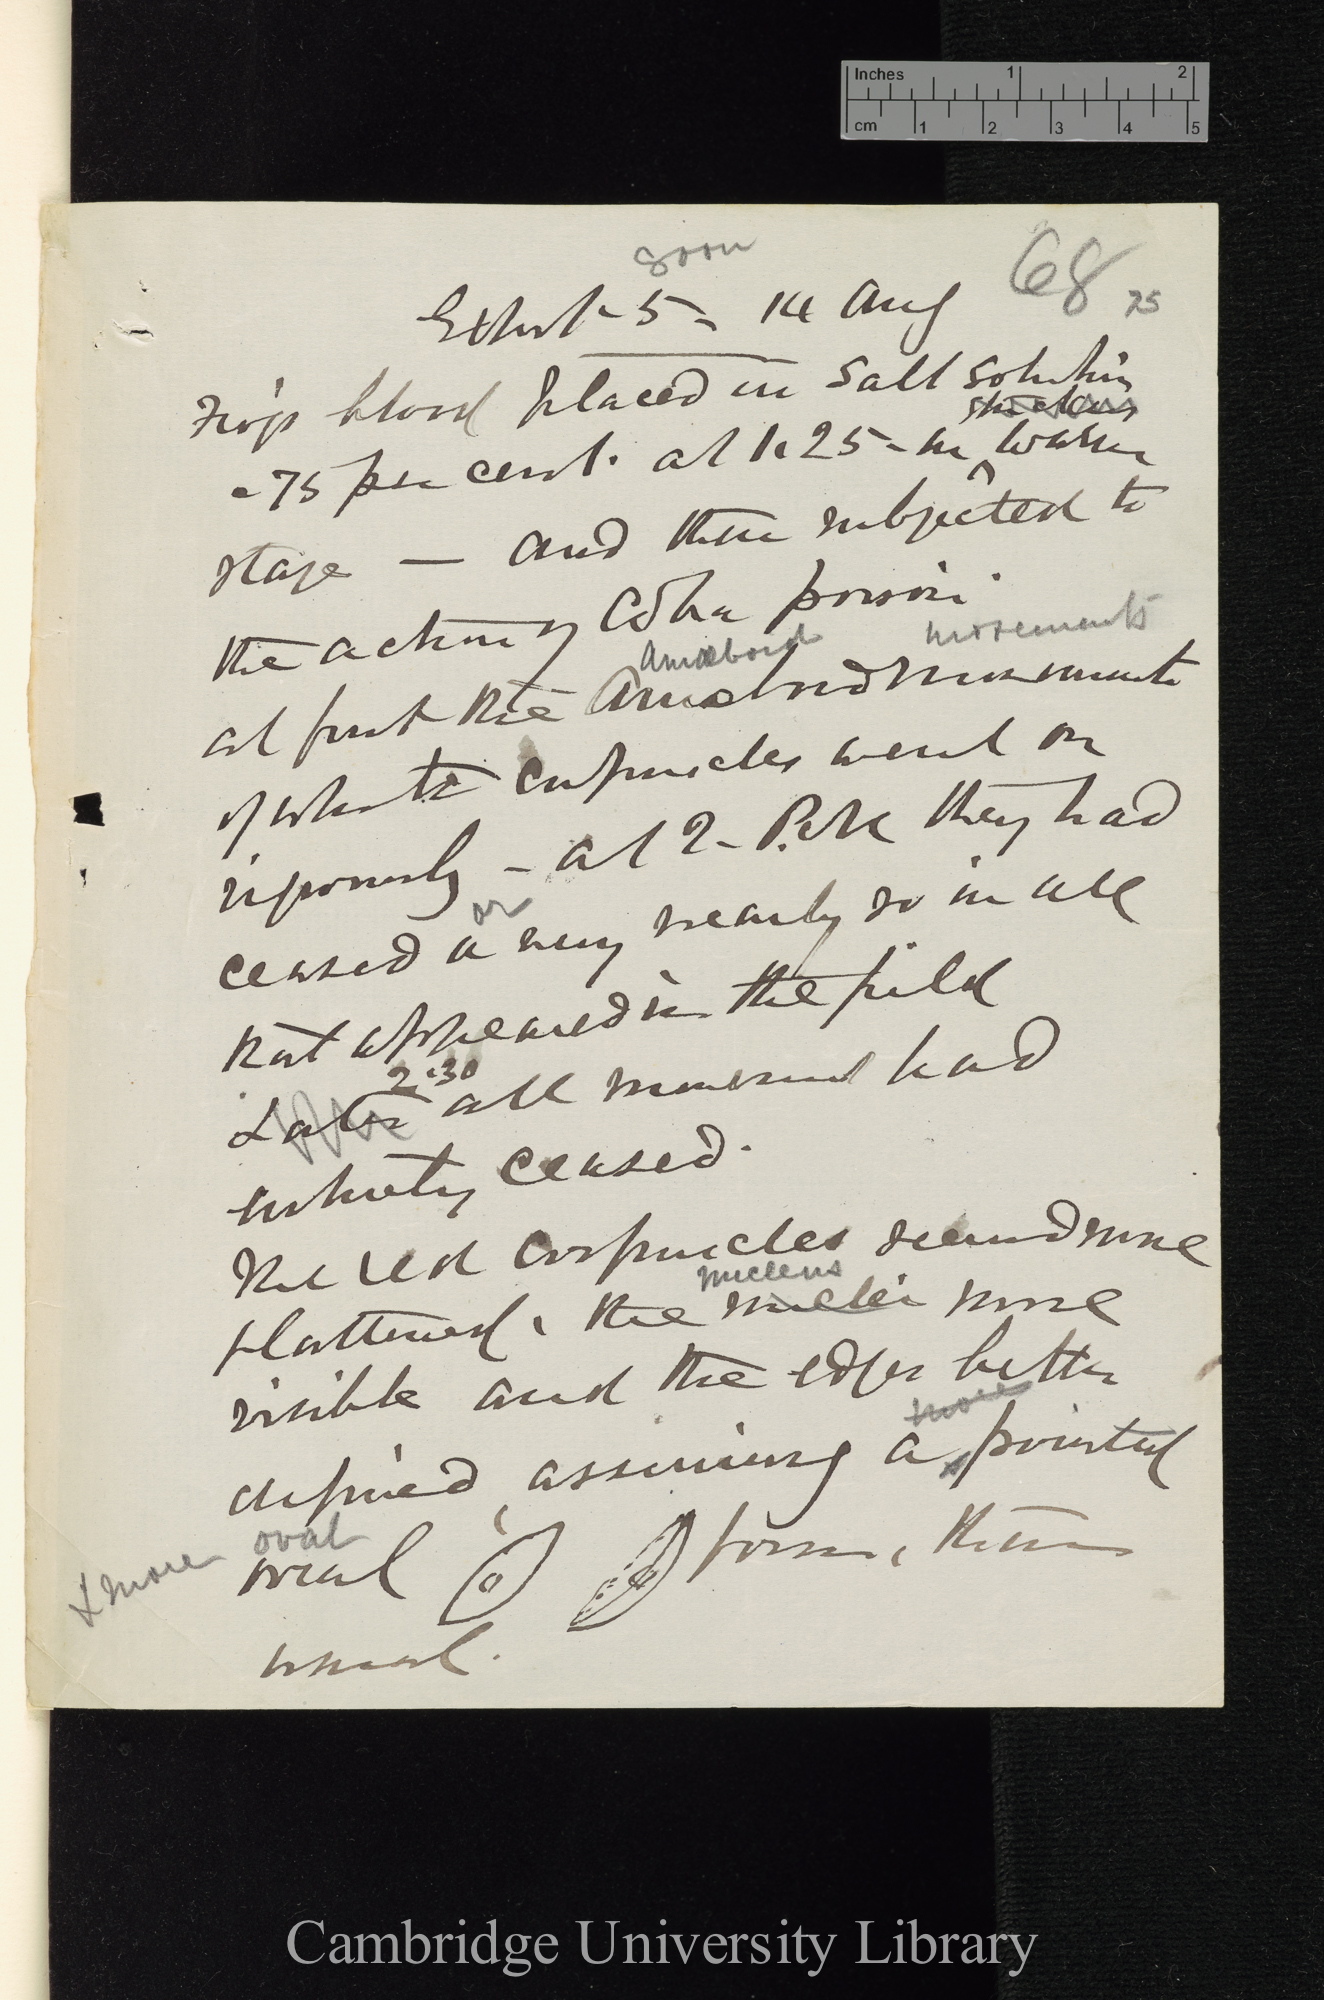 Inches 1 2
cm 1 2 3 4 5
soon
68
75
Exhibit 5 - 14 Aug
Frog's blood placed in salt solution
.75 per cent. at 1.25 - in warm
stage — and then subjected to
the action of Cobra poison.
Amœboid movements
at first the Amœboid movements
of white corpuscles went on
vigorously - at 2. P.M. they had
or
ceased or very nearly so in all
that appeared in the field
2.30
Later all movement had
entirely ceased.
The red corpuscles seemed more
nucleus
flattened, the nuclei more
visible and the edges better
more
defined assuming a pointed
& more oval
oval form, than
usual.
Cambridge University Library